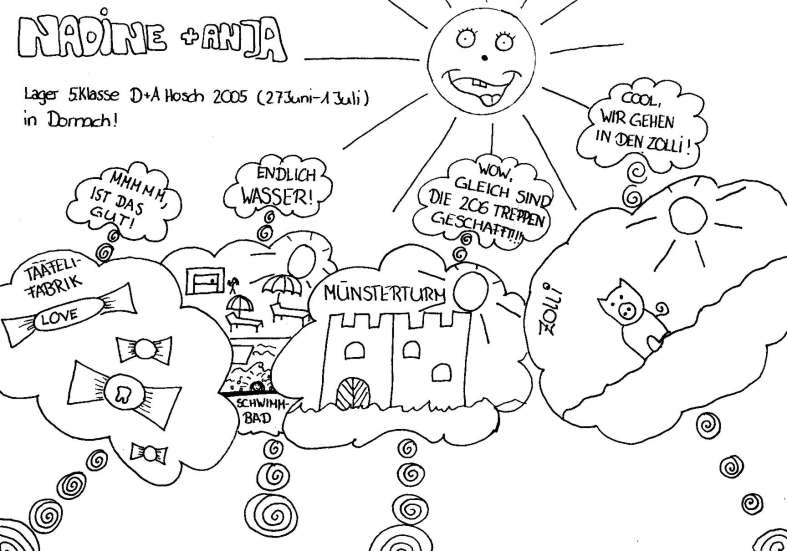 NADINE + ANJA
Lager 5.Klasse D+A Hosch 2005 (27Juni-1Juli)
in Dornach!
COOL,
WIR GEHEN
IN DEN ZOLLI!
MMMMM,
IST DAS
GUT!
ENDLICH
WASSER!
WOW,
GLEICH SIND
DIE 206 TREPPEN
GESCHAFFT!!!!
TÄÄFELI-
FABRIK
LOVE
SCHWIMM-
BAD
MÜNSTERTURM
ZOLLI